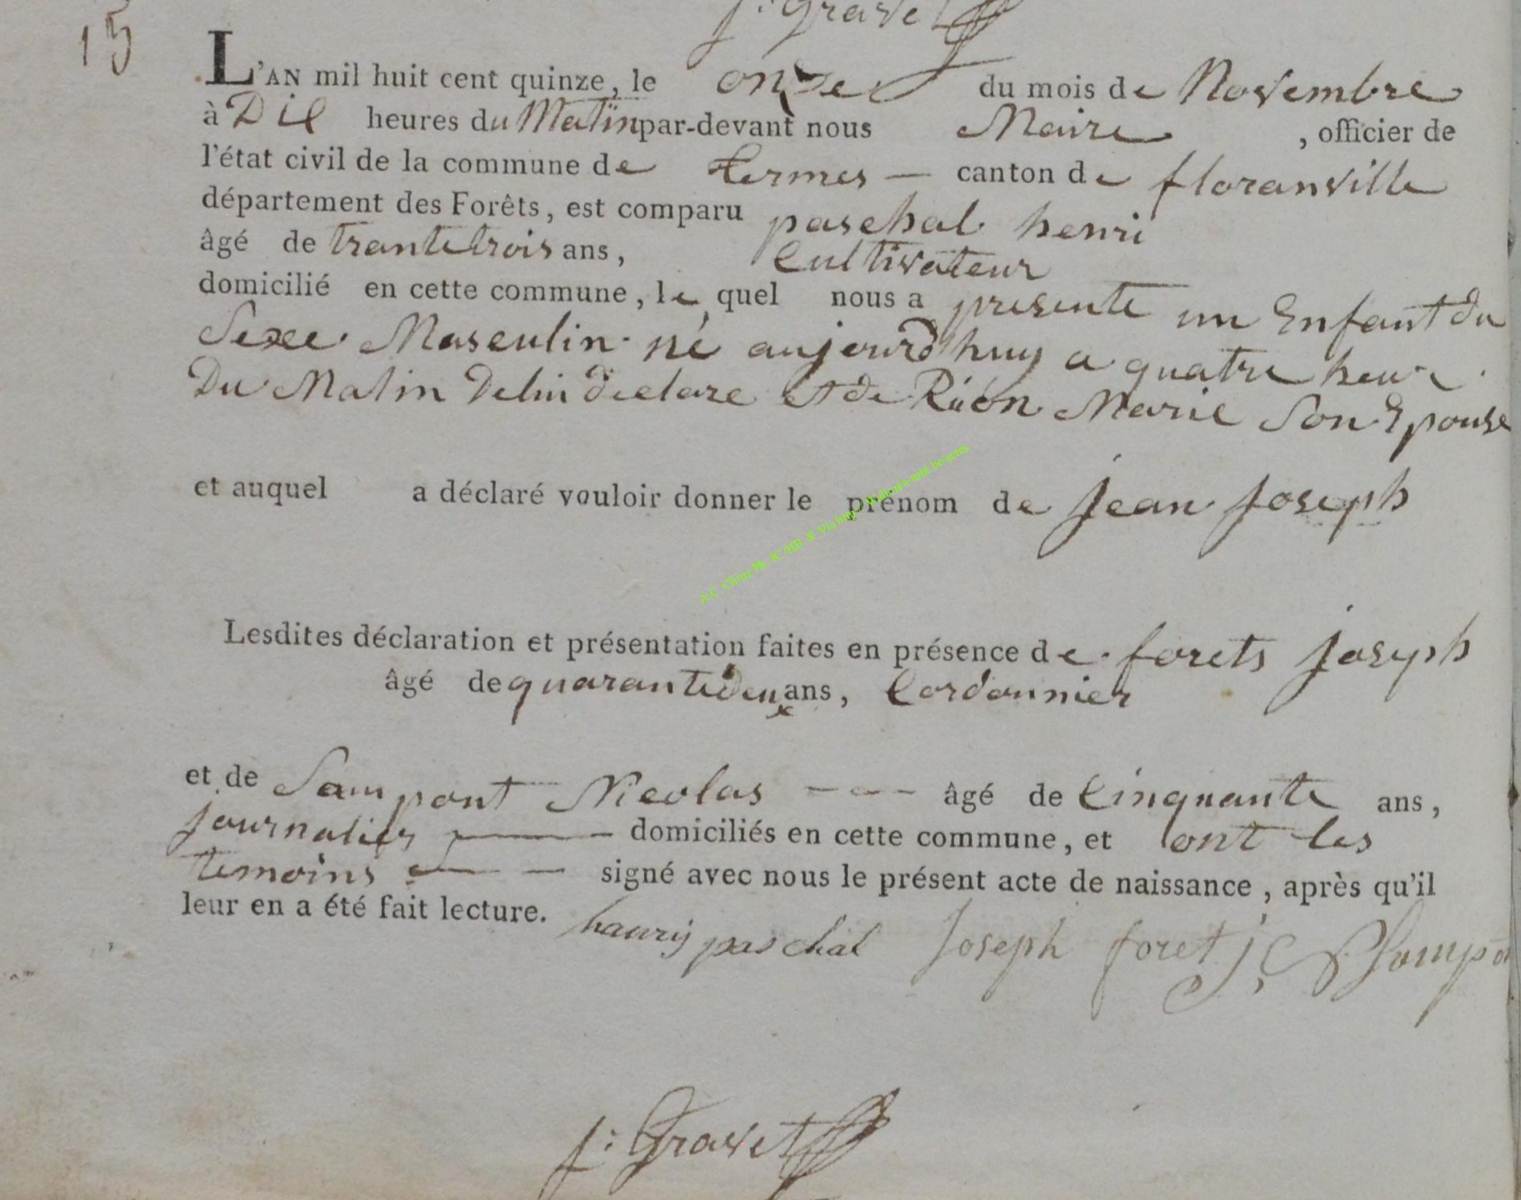 j: Gravet
15
L'AN mil huit cent quinze, le onze du mois de Novembre
à Dix heures du Matin par-devant nous Maire , officier de
l'état civil de la commune de termes — canton de floranville
département des Forêts, est comparu paschal henri
âgé de trante trois ans, Cultivateur
domicilié en cette commune, le quel nous a presenté un Enfant du
Sexe Masculin né aujourd'huy a quatre heure
Du Matin De lui declare et de Rion Marie Son Epouse
et auquel a déclaré vouloir donner le prénom de jean joseph
Lesdites déclaration et présentation faites en présence de forets joseph
âgé de quarante deux ans, Cordonnier
et de Sampont Nicolas — âgé de Cinquante ans,
journalier — domiciliés en cette commune, et ont les
temoins — signé avec nous le présent acte de naissance, après qu'il
leur en a été fait lecture. haurij paschal Joseph foret
j: Gravet